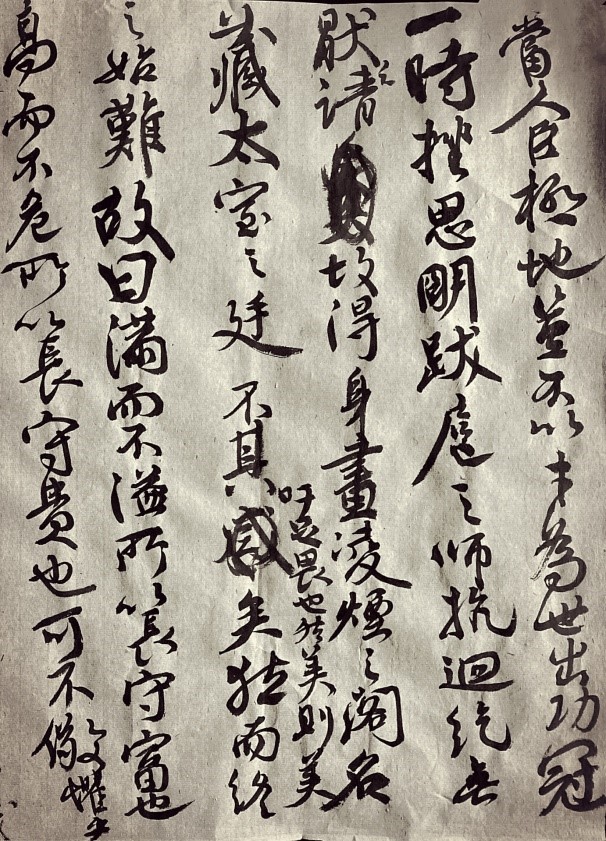 當人臣極地豈不以才為世出功冠
一時挫思明跋扈之師抗迴紇無
厭之請故得身畫凌煙之閣名
藏太室之廷不其矣然而終
吁足畏也然美則美
之始難故曰滿而不溢所以長守富也
高而不危所以長守貴也可不儆懼乎